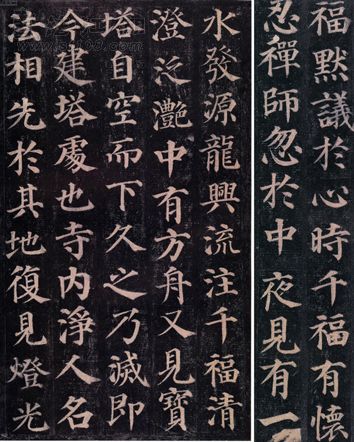 福默議於心時千福有懷
忍禪師忽於中夜見有一
水發源龍興流注千福清
澄泛灩中有方舟又見寶
塔自空而下久之乃滅即
今建塔處也寺内淨人名
法相先於其地復見燈光